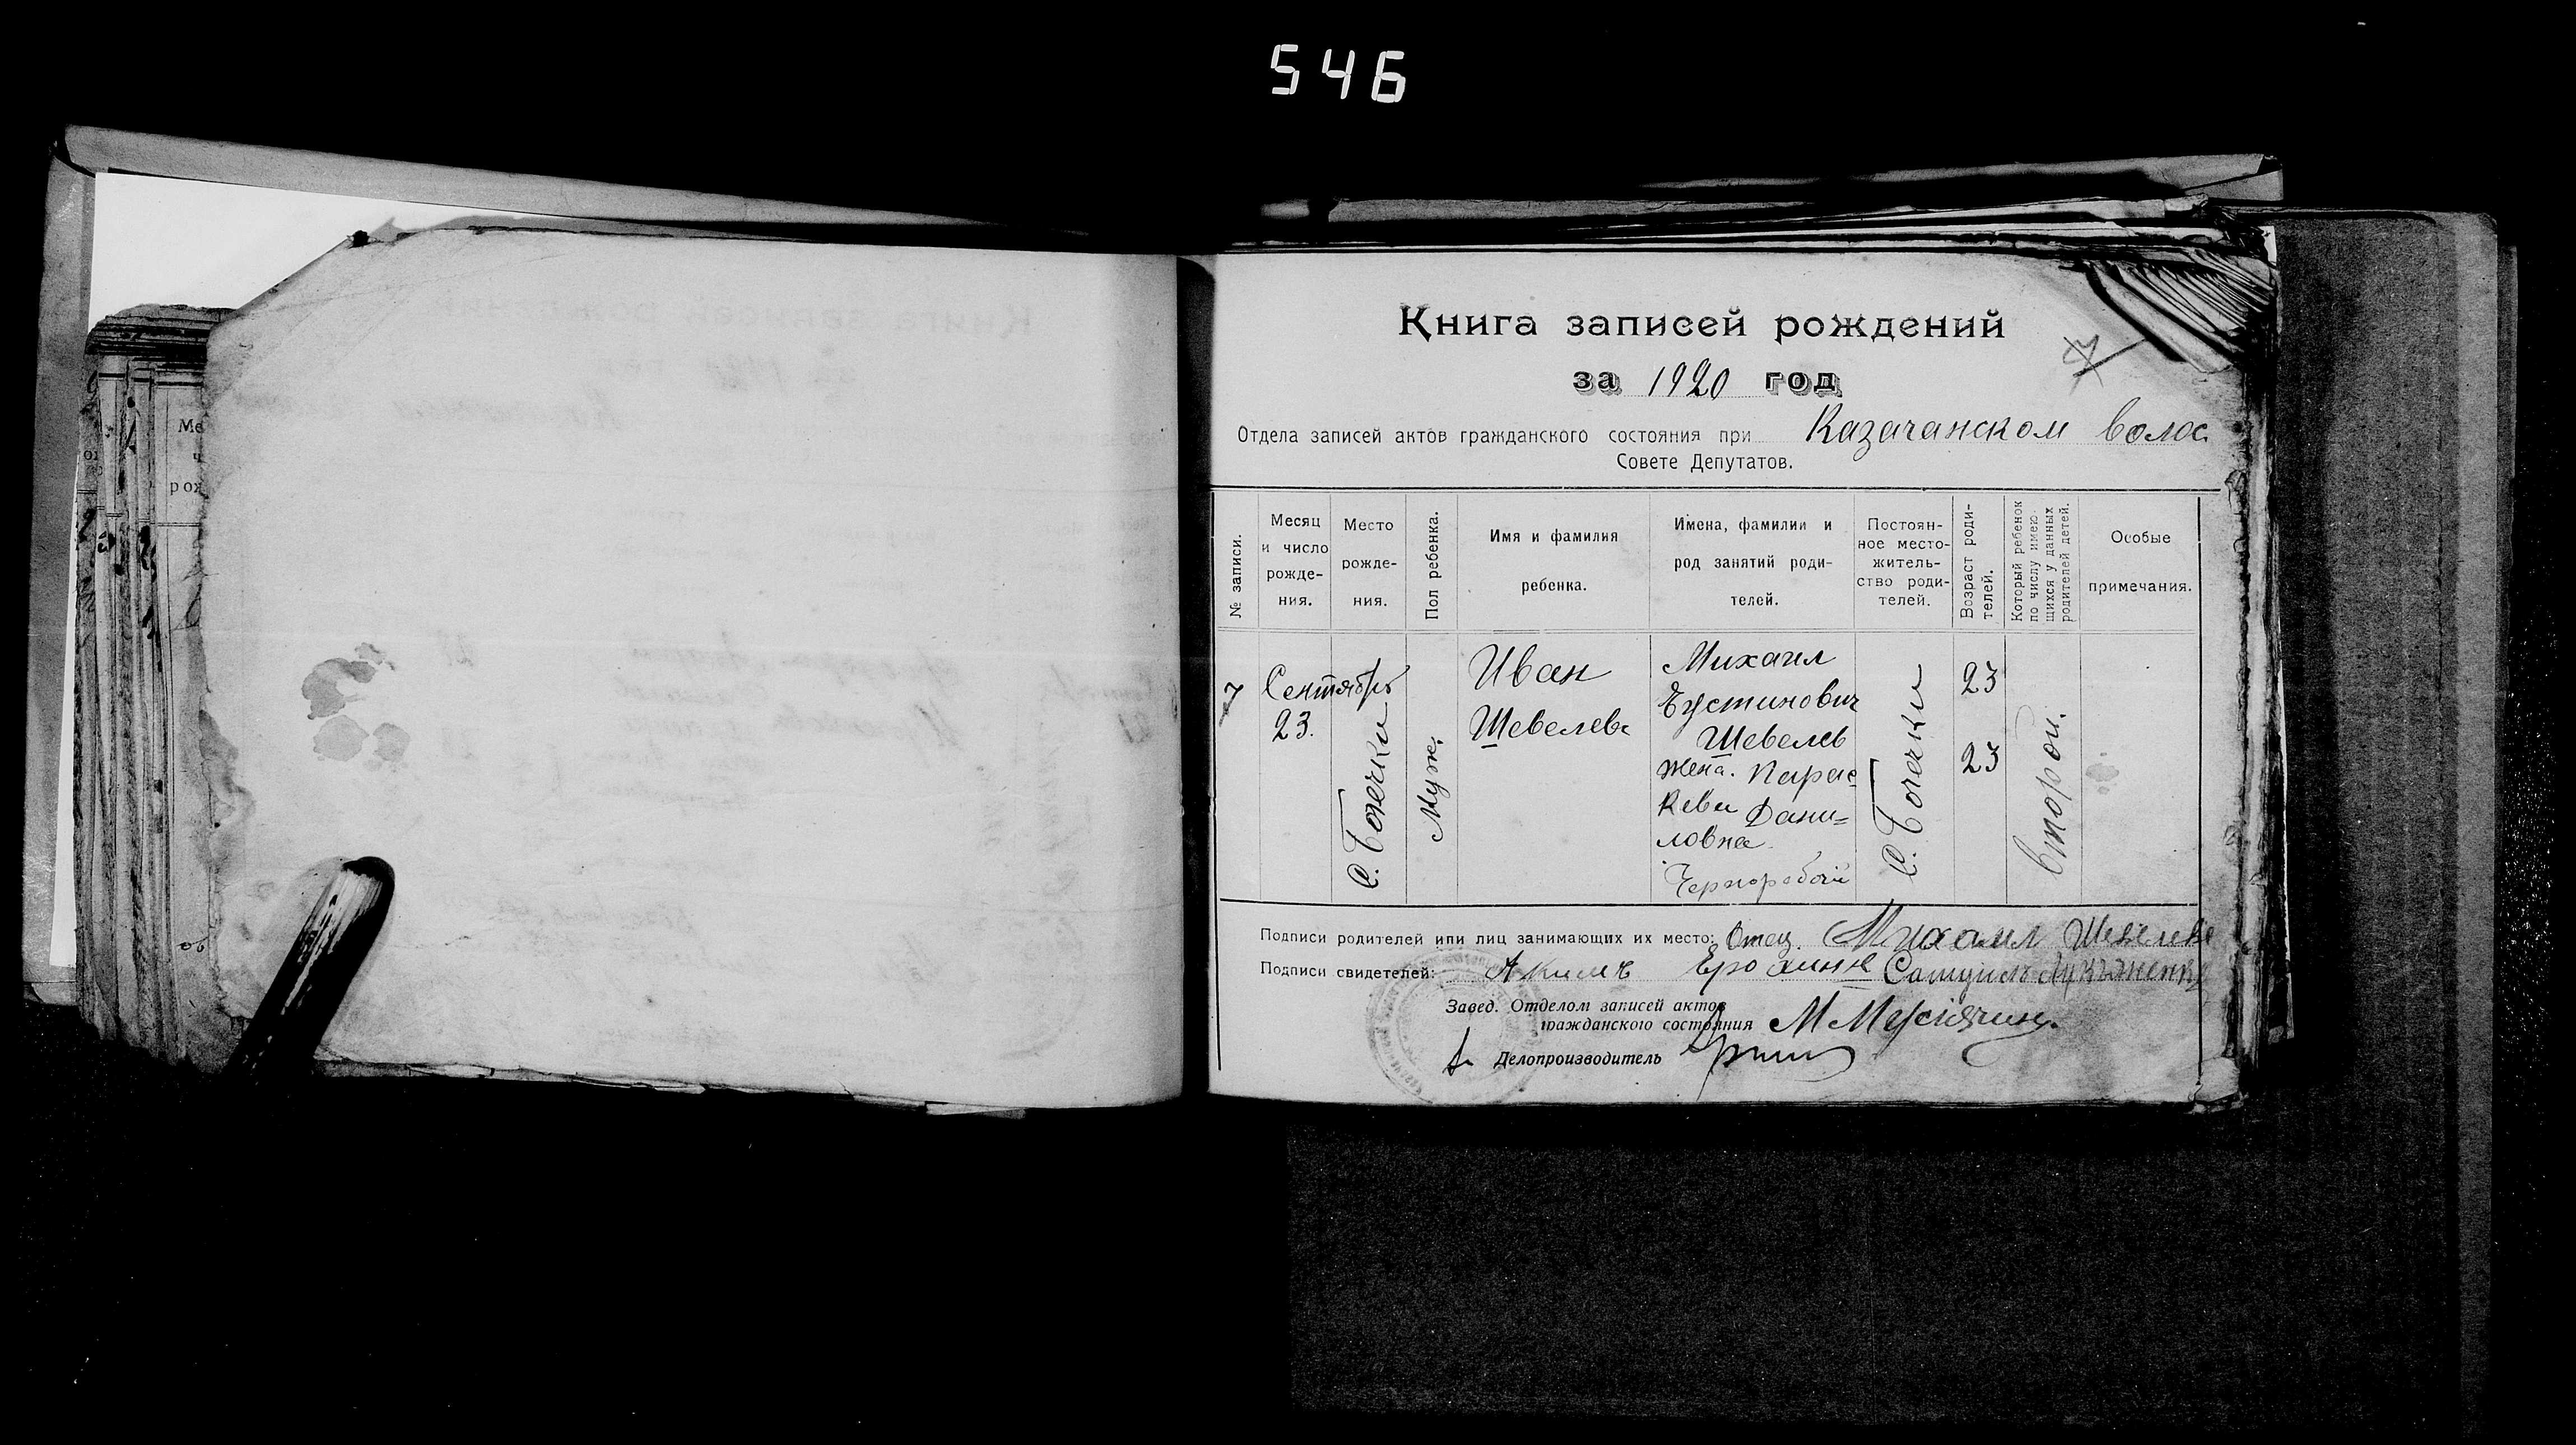 546
Ме
ч
рож
Книга записей рождений
за 1920 год
7
Отдела записей актов гражданского состояния при Казачанском волос
Совете Депутатов.
№ записи.
Месяц
и число
рожде-
ния.
Место
рожде-
ния.
Пол ребенка.
Имя и фамилия
ребенка.
Имена, фамилии и
род занятий роди-
телей.
Постоян-
ное место-
житель-
ство роди-
телей.
Возраст роди-
телей.
Который ребенок
по числу имею-
щихся у данных
родителей детей.
Особые
примечания.
7
Сентябрь
23.
с. Бочечки
Муж.
Иван
Шевелевъ
Михаил
Еустинович
Шевелев
жена. Парас
кева Дани=
ловна
Чернорабочий
с. Бочечки
23
23
второй.
Подписи родителей или лиц занимающих их место: Отец. Михаил Шевелевъ
Подписи свидетелей: Акимъ Ерохинъ
Завед. Отделом записей актов
гражданского состояния
Делопроизводитель